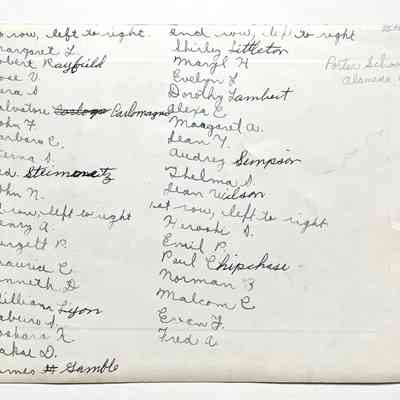 row, left to right.
Margaret L.
Robert Rayfield
Rose V.
Salvatore Carlomagno
John F.
Barbara C.
Verna S.
Steinmetz
John N.
row, left to right
Henry A.
Maurice C.
Kenneth D.
William Lyon
Barbara K.
James Gamble
2nd row, left to right
Shirley Littleton
Meryl H
Evelyn L
Dorothy Lambert
Alexa E.
Margaret A.
Jean Y.
Audrey Simpson
Thelma S.
Jean Wilson
1st row, left to right
Emil P.
Paul Chipchase
Norman B
Malcom C
Fred A
Porter School
Alameda